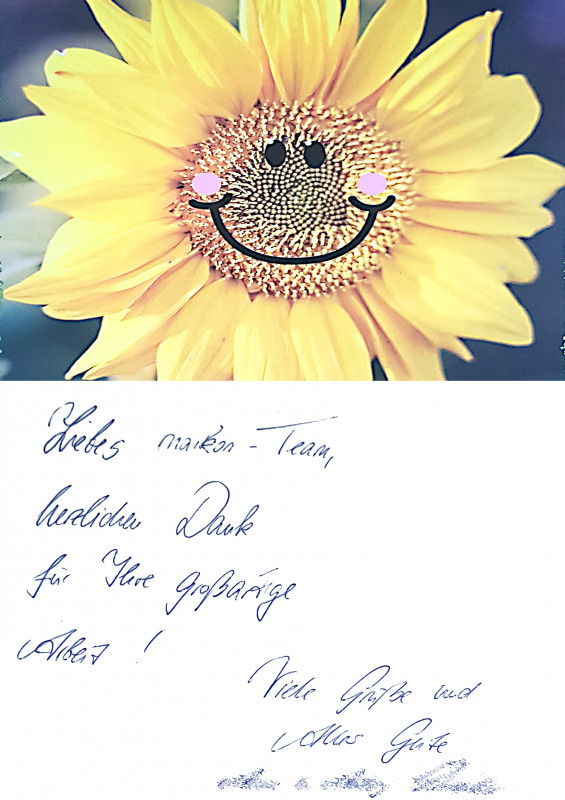 Liebes maikon-Team,
herzlichen Dank
für Ihre großartige
Arbeit!
Viele Grüße und
Alles Gute